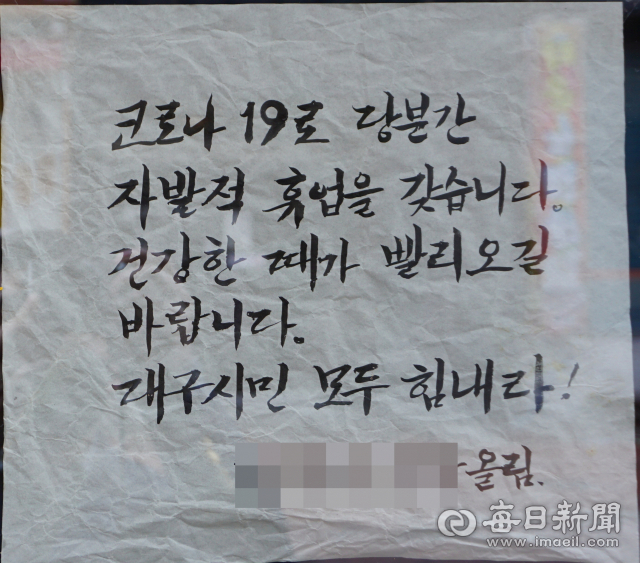 코로나 19로 당분간
자발적 휴업을 갖습니다.
건강한 때가 빨리오길
바랍니다.
대구시민 모두 힘내라!
올림.
每日新聞
www.imaeil.com